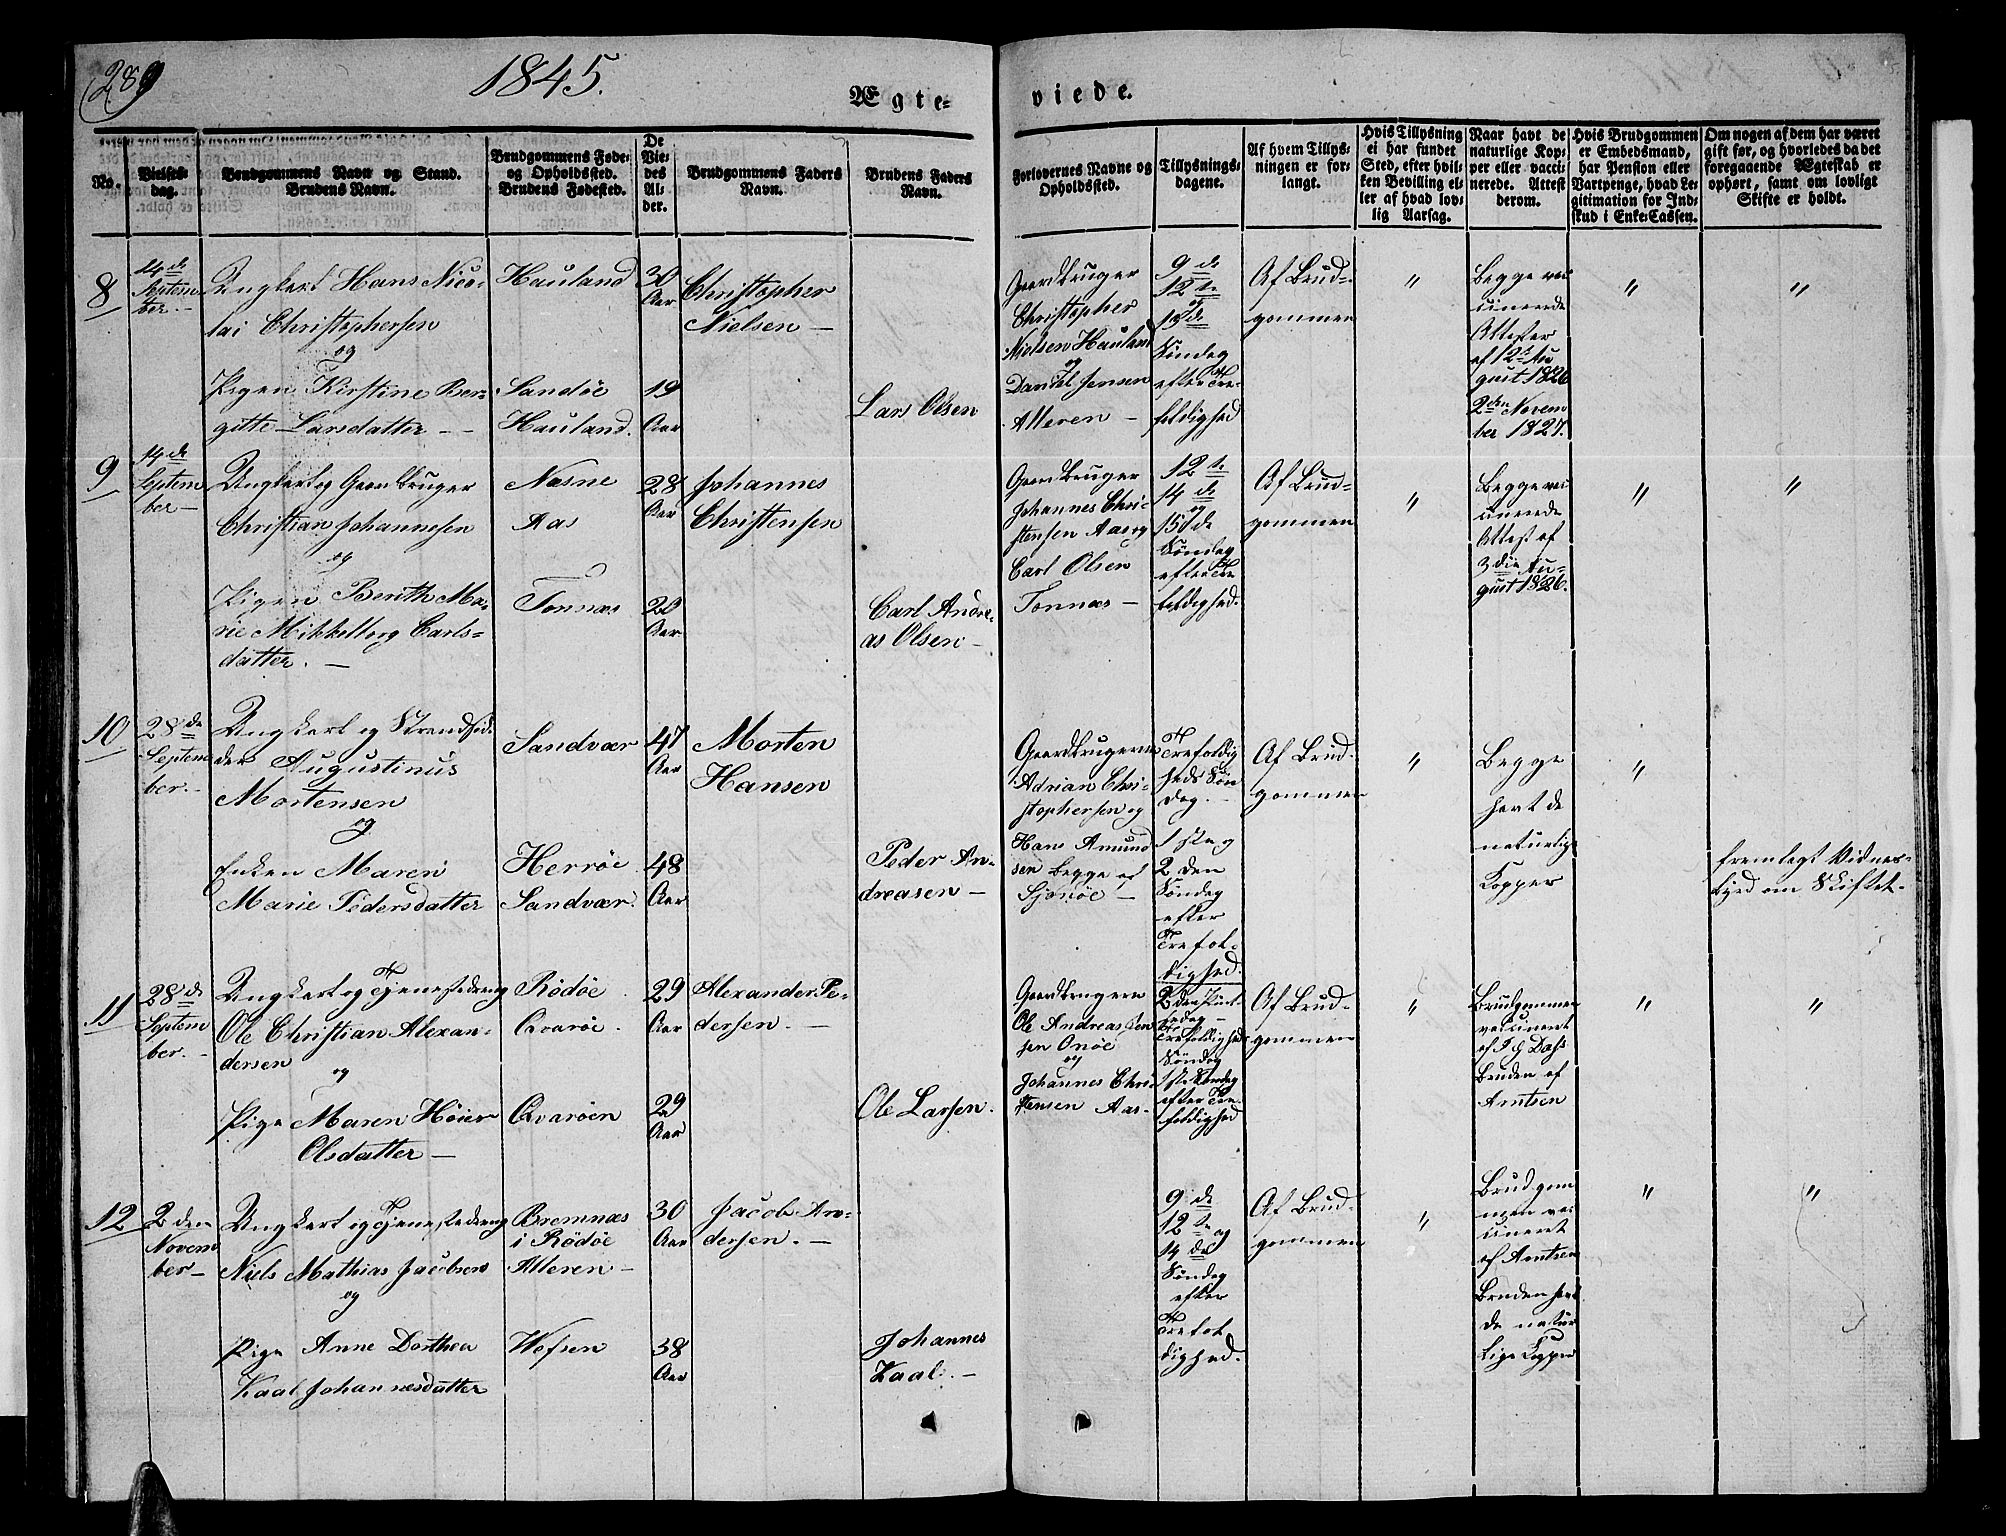 289
1845.
Ægte=
viede.
No.
Vielses-
dag.
Brudgommens Navn og Stand.
Brudens Navn.
Brudgommens Føde-
og Opholdssted.
Brudens Fødested.
De
Vie-
des
Al-
der.
Brudgommens Faders
Navn.
Brudens Faders
Navn.
Forlovernes Navne og
Opholdssted.
Tillysnings-
dagene.
Af hvem Tillys-
ningen er for-
langt.
Hvis Tillysning
ei har fundet
Sted, efter hvil-
ken Bevilling el-
ler af hvad lov-
lig Aarsag.
Naar havt de
naturlige Kop-
per eller vacci-
nerede. Attest
derom.
Hvis Brudgommen
er Embedsmand,
har Pension eller
Vartpenge, hvad Le-
gitimation for Ind-
skud i Enke-Cassen.
Om nogen af dem har været
gift før, og hvorledes da det
foregaaende Ægteskab er
ophørt, samt om lovligt
Skifte er holdt.
8
14de
Septem
ber.-
Ungkarl Hans Nico-
lai Christophersen
og
Pigen Kirstine Ber-
gitte Larsdatter -
Hauland
Sandöe
Hauland.
30
Aar
19
Aar
Christopher
Nielsen -
Lars Olsen
Gaardbruger
Christopher
Nielsen Hauland
og
Daniel Jensen
Alteren -
9de
12te
og
13de
Søndag
efter Tre-
foldighed
Af Brud-
gommen
"
Begge vac
cinerede
Attester
af 12te Au
gust 1826
2den Novem
ber 1827.
"
"
9
14de
Septem
ber -
Ungkarl og Gaardbruger
Christian Johannesen
og
Pigen Berith Ma-
rie Mikkelborg Carls-
datter. -
Næsne
Aas
Tonnæs
28
Aar
20
Aar
Johannes
Christensen
Carl Andre-
as Olsen -
Gaardbruger
Johannes Chri-
stensen Aas og
Carl Olsen
Tonnæs -
12te
14de
og
15de
Søndag
efter Tre
foldighed.
Af Brud-
gommen
"
Begge vac
cinerede
Attest af
3die Au-
gust 1826.
"
"
10
28de
Septem
ber.-
Ungkarl og Strandsid
der Augustinus
Mortensen
og
Enken Maren
Marie Pedersdatter
Sandvær
Herröe
Sandvær.
47
Aar
48
Aar
Morten
Hansen
Peder An-
dreasen -
Gaardbrugerne
Adrian Chri-
stophersen og
Hans Amund
sen begge af
Sjonöe -
Trefoldig
heds Søn
dag. -
1ste og
2den
Søndag
efter
Trefol-
dighed.
Af Brud-
gommen
"
Begge
havt de
naturlige
Kopper
"
fremlagt Vidnes-
byrd om Skiftet -
11
28de
Septem
ber. -
Ungkarl og Tjenestedreng
Ole Christian Alexan-
dersen
og
Pige Maren Höier
Olsdatter -
Rödöe
Qvaröe.
Qvaröen
29
Aar
29
Aar
Alexander Pe-
dersen. -
Ole Larsen.
Gaardbrugerne
Ole Andreas Jen
sen Onöe
og
Johannes Chri-
stensen Aas -
2den Pint
sedag -
Trefoldigheds
Søndag
1ste Søndag
efter Tre-
foldighed
Af Brud-
gommen
"
Brudgommen
vaccineret
af
Bruden af
Arntsen
"
"
12
2den
Novem
ber -
Ungkarl og Tjenestedreng
Niels Mathias Jacobsen
og
Pige Anne Dorthea
Kaal Johannesdatter
Bremnæs
i Rödöe
Alteren -
Wefsen
30
Aar
38
Aar
Jacob An-
dersen. -
Johannes
Kaal. -
9de
12te og
14de
Søndag
efter
Trefol
dighed.
Af Brud-
gommen
"
Brudgom
men vac
cineret
af Arntsen
Bruden havt
de natur
lige Kopper
"
"